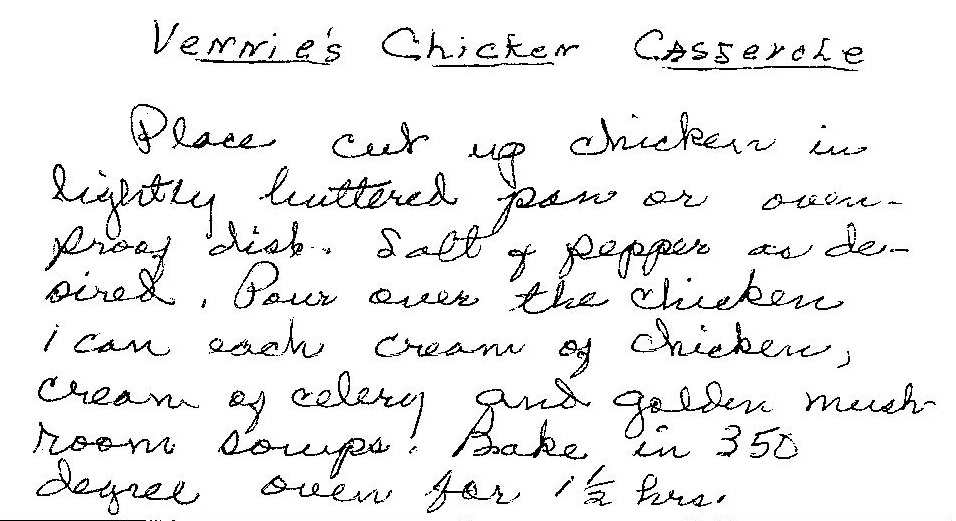 Vennie's Chicken Casserole
Place cut up chicken in
lightly buttered pan or oven-
proof dish. Salt & pepper as de-
sired. Pour over the chicken
1 can each cream of chicken,
cream of celery and golden mush-
room soups. Bake in 350
degree oven for 1 1/2 hrs.